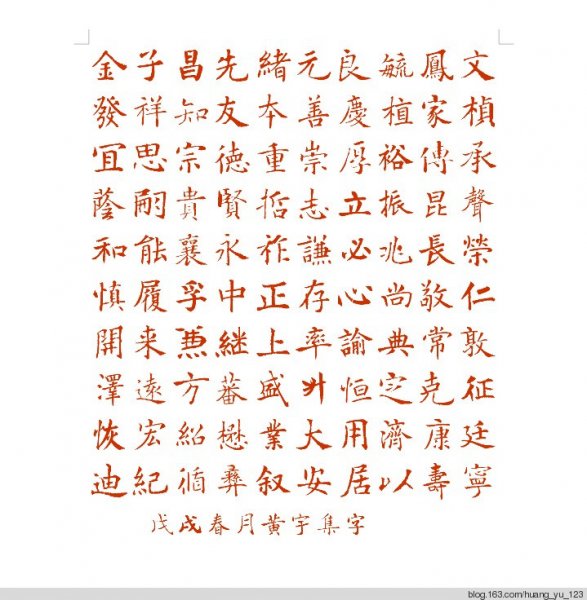 金子昌先緒元良毓鳳文
發祥知友本善慶植家楨
宜思宗德重崇厚裕傳承
蔭嗣貴賢哲志立振昆聲
和能襄永祚謙必兆長榮
慎履孚中正存心尚敬仁
開来兼継上率諭典常敦
澤遠方蕃盛升恒定克征
恢宏紹懋業大用濟康廷
迪紀循彝叙安居以壽寧
戊戌春月黄宇集字
blog.163.com/huang_yu_123